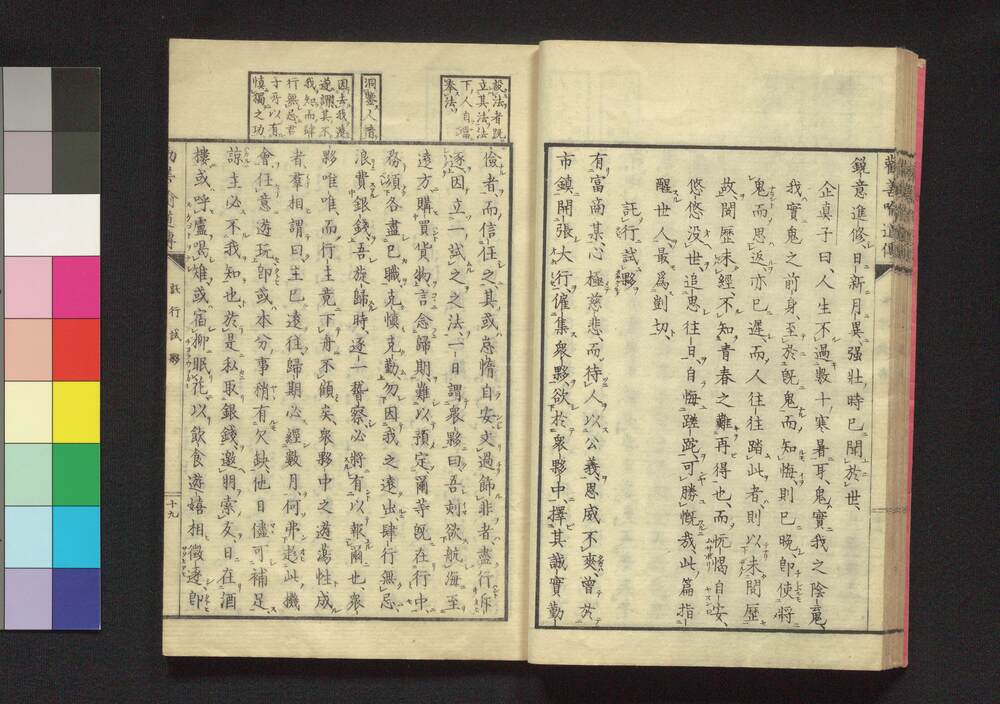 勸善喻道傳
鋭意進修、日新月異、强壯時已聞於世、
企真子曰、人生不過數十寒暑耳、鬼實我之陰竟、
我實鬼之前身、至於既鬼而知悔、則已晩、卽使將
鬼而思返、亦已遲、而人往往踏此者、則以未閱歷
故、閱歷未經、不知青春之難再得也、而忨愒自安、
悠悠没世、追思往日、自悔蹉跎、可勝慨哉、此篇指
醒世人最爲剴切、
託行試夥
有富商某、心極慈悲、而待人以公義、恩威不爽、曾於
市鎮開張大行、僱集衆夥、欲於衆夥中擇其誠實勤
設法者既
立其法、法
下人自當
奉法、
儉者、而信任之、其或怠惰自安、文過飾非者、盡行斥
逐、因立一試之之法、一日謂衆夥曰、吾刻欲航海至
遠方、購買貨物、言念歸期、難以預定、爾等既在行中、
務須各盡已職、克慎克勤、勿因我之遠出、肆行無忌、
浪費銀錢、吾旋歸時、逐一䅲察、必將有以報爾也、衆
夥唯唯、而行主竟下舟不顧矣、衆夥中之遊蕩性成
者、羣相謂曰、主已遠往、歸期必經數月、何弗趁此機
會、任意遊玩、卽或本分事稍有欠缺、他日儘可補足、
諒主必不我知也、於是私取銀錢、邀朋索友、日在酒
樓、或呼盧喝雉、或宿柳眠花、以飲食遊嬉相徵逐、卽
洞鑒人情
因去我遠
遂謂其不
我知而肆
行無忌、君
子所以有
慎獨之功、
託行試夥
十九